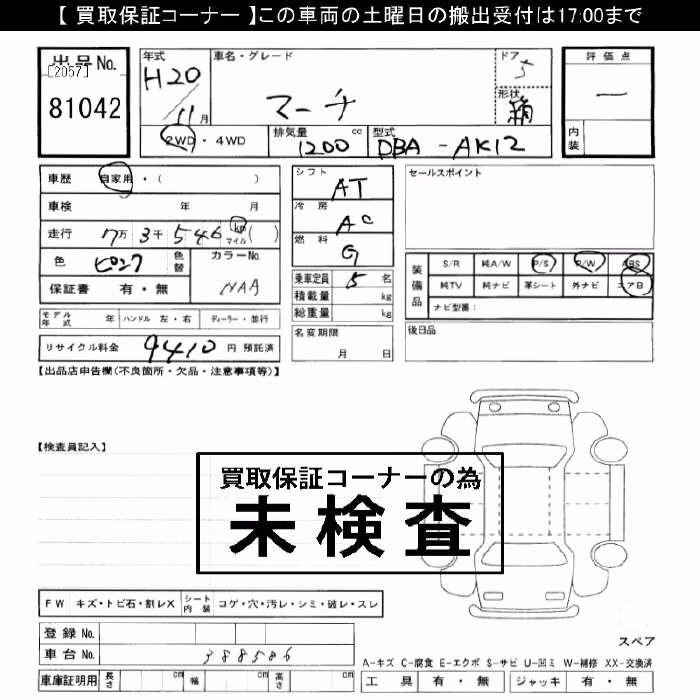 【 買取保証コーナー 】この車両の土曜日の搬出受付は17:00まで
出品No. [2057] 81042
年式 H20/11月
車名・グレード マーチ
ドア 5
形状 箱
評価点 —
内装
2WD・4WD
排気量 1200 cc
型式 DBA-AK12
車歴 自家用・( )
車検 年 月
走行 7万3千546 km マイル ( )
色 ピンク 色替
カラーNo. NAA
保証書 有・無
シフト AT
冷房 AC
燃料 G
乗車定員 5名
積載量 kg
総重量 kg
セールスポイント
装備品 S/R 純A/W P/S P/W ABS
純TV 純ナビ 革シート 外ナビ エアB
ナビ型番:
モデル年式 年 ハンドル 左・右 ディーラー・並行
名変期限 月 日
後日品
リサイクル料金 9410 円 預託済
【出品店申告欄(不良箇所・欠品・注意事項等)】
【検査員記入】
買取保証コーナーの為
未検査
FW キズ・トビ石・割レX シート内装 コゲ・穴・汚レ・シミ・破レ・スレ
登録No.
車台No. 388586
車庫証明用 長さ cm 幅 cm 高さ cm
スペア
A-キズ C-腐食 E-エクボ S-サビ U-凹ミ W-補修 XX-交換済
工具 有・無 ジャッキ 有・無